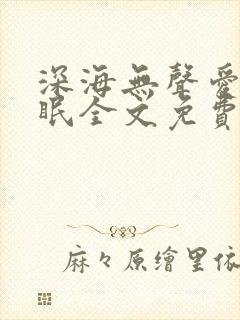 深海無聲愛
眠全文免費
麻々原繪里依